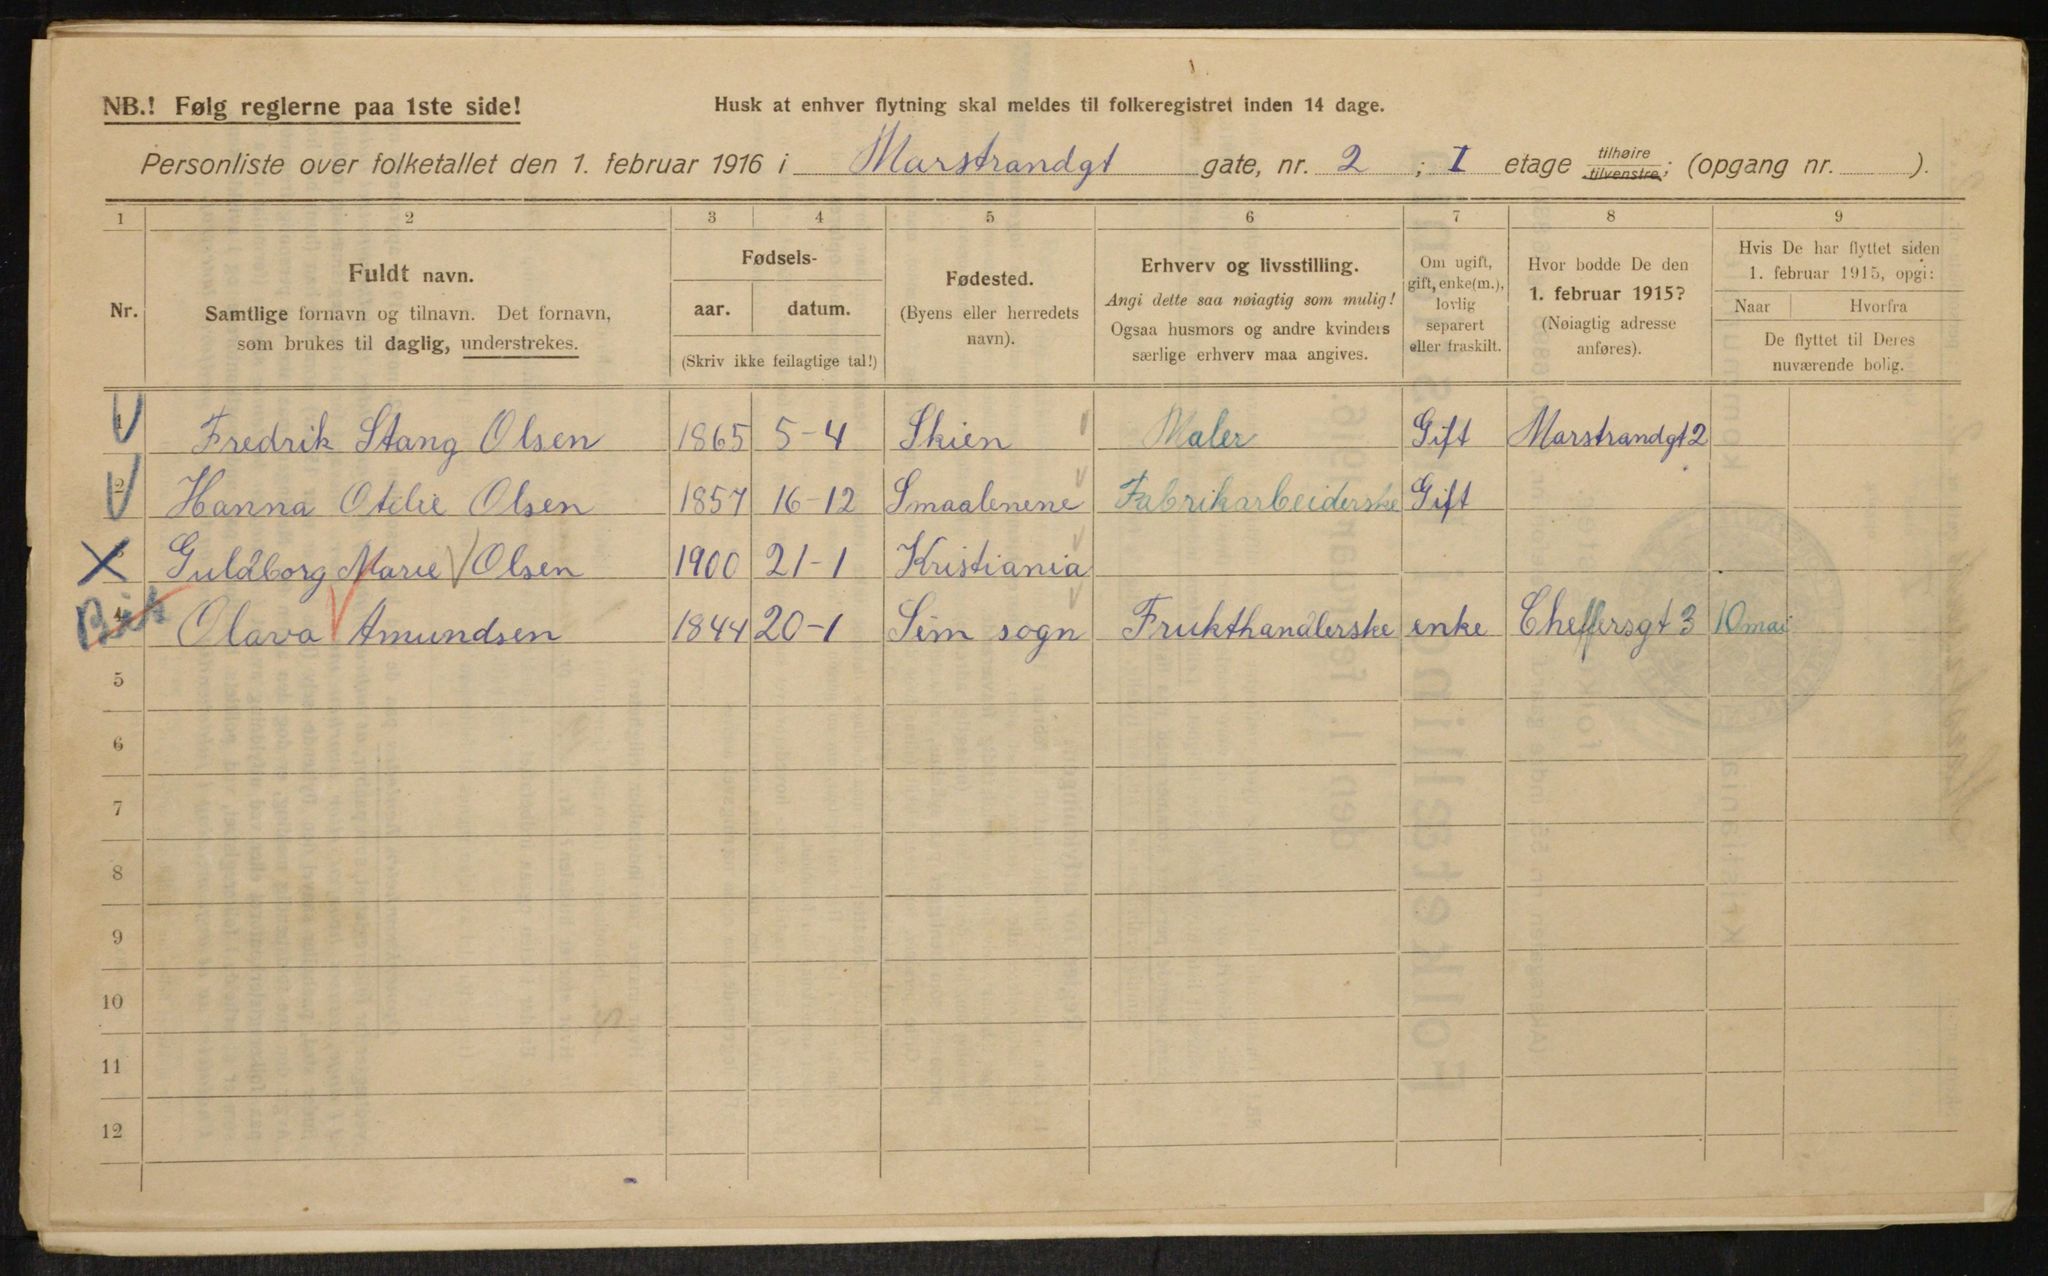 NB.! Følg reglerne paa 1ste side!
Husk at enhver flytning skal meldes til folkeregistret inden 14 dage.
Personliste over folketallet den 1. februar 1916 i Marstrandgt gate, nr. 2 ; I etage tilhøire tilvenstre; (opgang nr. ).
1 2 3 4 5 6 7 8 9
Nr.
Fuldt navn.
Samtlige fornavn og tilnavn. Det fornavn,
som brukes til daglig, understrekes.
Fødsels-
aar. datum.
(Skriv ikke feilagtige tal!)
Fødested.
(Byens eller herredets
navn).
Erhverv og livsstilling.
Angi dette saa nøiagtig som mulig!
Ogsaa husmors og andre kvinders
særlige erhverv maa angives.
Om ugift,
gift, enke(m.),
lovlig
separert
eller fraskilt.
Hvor bodde De den
1. februar 1915?
(Nøiagtig adresse
anføres).
Hvis De har flyttet siden
1. februar 1915, opgi:
Naar Hvorfra
De flyttet til Deres
nuværende bolig.
1 Fredrik Stang Olsen 1865 5-4 Skien Maler Gift Marstrandgt 2
2 Hanna Otilie Olsen 1857 16-12 Smaalenene Fabrikarbeiderske Gift
3 Guldborg Marie Olsen 1900 21-1 Kristiania
4 Olava Amundsen 1844 20-1 Sem sogn Frukthandlerske enke Cheffersgt 3 10 mai
5
6
7
8
9
10
11
12